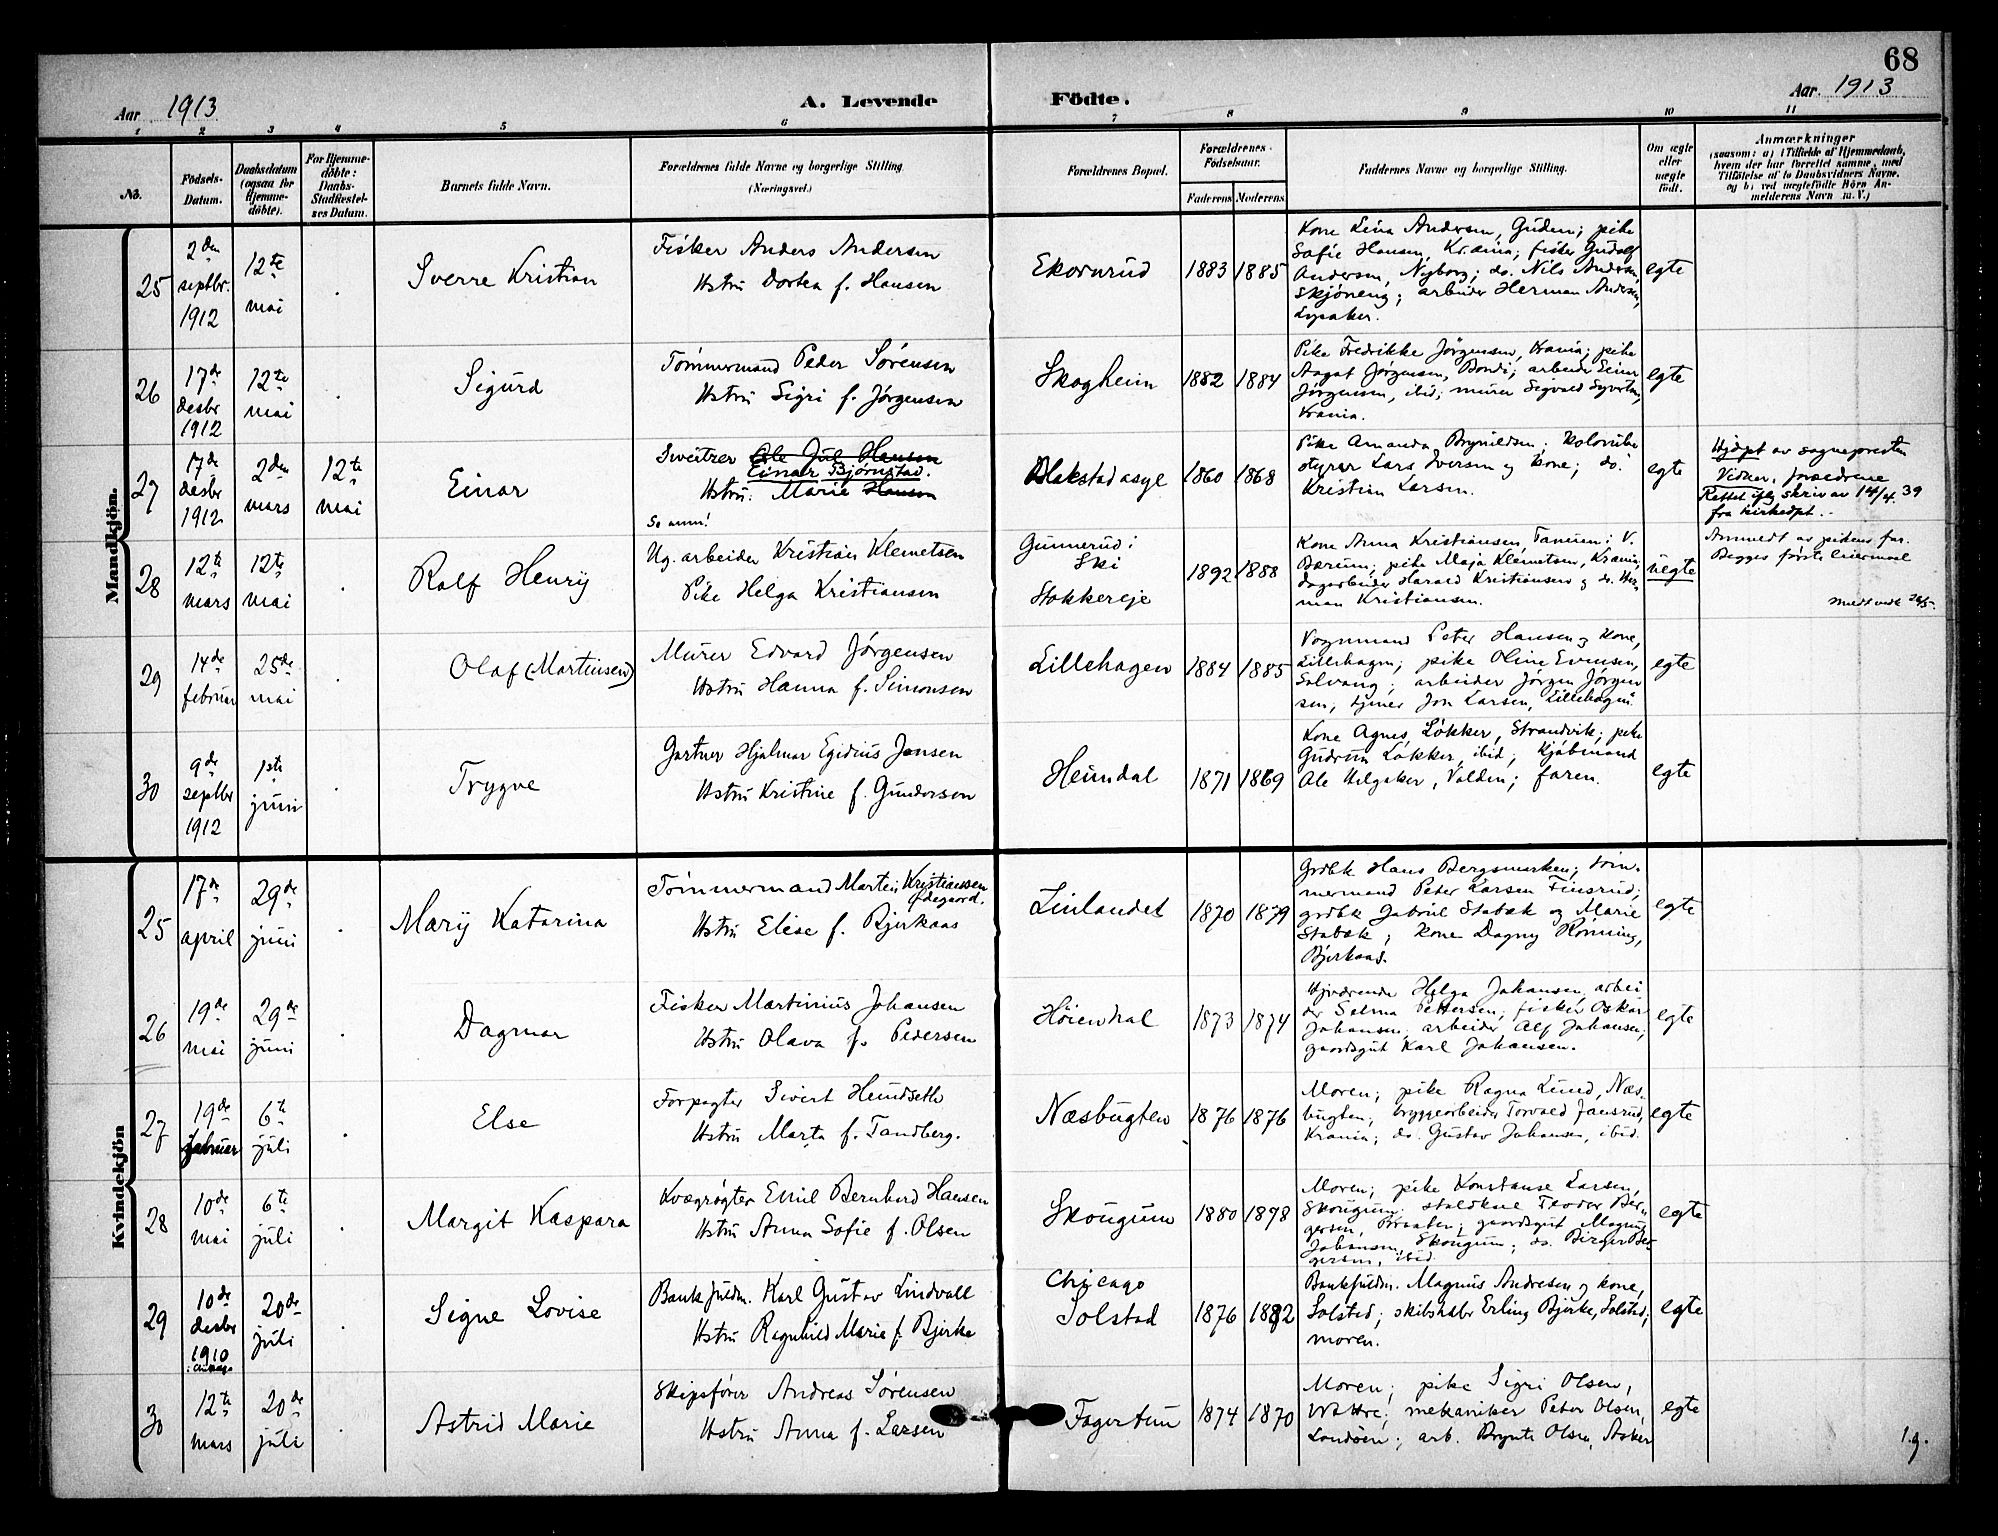 68
Aar 1913
A. Levende
Födte.
Aar 1913
1 2 3 4 5 6 7 8 9 10 11
No.
Födsels-Datum.
Daabsdatum (ogsaa for Hjemmedöbte).
For Hjemmedöbte: Daabs-Stadfæstelses Datum.
Barnets fulde Navn.
Forældrenes fulde Navne og borgerlige Stilling (Næringsvei.)
Forældrenes Bopæl.
Forældrenes Födselsaar.
Faderens
Moderens
Faddernes Navne og borgerlige Stilling.
Om ægte eller uægte födt.
Anmærkninger
(saasom: a) i Tilfælde af Hjemmedaab, hvem der har forrettet samme, med Tilföielse af to Daabsvidners Navne, og b) ved uægtefödte Börn Anmelderens Navn m. V.)
Mandkjön.
25
2den septbr. 1912
12te mai
Sverre Kristian
Fisker Anders Andersen
Hstru Dortea f. Hansen
Ekornrud
1883 1885
Kone Lina Andersen, Guden; pike
Sofie Hansen, Krania; fisker Gudolf
Andersen, Nyborg; do. Nils Andersen,
Skjöneng; arbeider Herman Andersen,
Lysaker.
egte
26
17de desbr 1912
12te mai
Sigurd
Tömmermand Peder Sørensen
Hstru Sigri f. Jørgensen
Skogheim
1882 1884
Pike Fredrikke Jørgensen, Krania; pike
Aagot Jørgensen, Bondi; arbeider Einar
Jørgensen, ibid; murer Sigvald Syvertsen,
Krania.
egte
27
17de desbr 1912
2den mars
12te mai
Einar
Sveitzer Ole Jul Hansen
Einar Bjørnstad.
Hstru: Marie Hansen
Se anm!
Blakstad asyl
1860 1868
Pike Amanda Brynildsen; Kolonibestyrer Lars Iversen og kone; do.
Kristian Larsen.
egte
Hjdpt av sognepresten
Vidner, forældrene
Rettet iflg skriv av 14/4 39
fra kirkedpt.
28
12te mars
12te mai
Rolf Henry
Ug. arbeider Kristian Klemetsen
Pike Helga Kristiansen
Gunnerud i Ski
Stokkereje
1892 1888
Kone Anna Kristiansen, Tanum i V.
Bærum; pike Maja Klemetsen, Krania;
dagarbeider Harald Kristiansen og do. Herman Kristiansen.
uegte
Anmeldt av pikens far.
Begges første leiermaal
29
14de februar
25de mai
Olaf (Martinsen)
Murer Edvard Jørgensen
Hstru Hanna f. Simonsen
Lillehagen
1884 1885
Vognmand Peter Hansen og kone,
Lillehagen; pike Oline Evensen,
Solvang; arbeider Jørgen Jørgensen, tjener Jon Larsen, Lillehagen.
egte
30
9de septbr 1912
1ste juni
Trygve
Gartner Hjalmar Egidius Jensen
Hstru Kristine f. Gundersen
Heimdal
1871 1869
Kone Agnes Løkker, Strandvik; pike
Gudrun Løkker, ibid; kjøbmand
Ole Helgeker, Valden; faren.
egte
Kvindekjön
25
17de april
29de juni
Mary Katarina
Tömmermand Martin Kristiansen
Ødegaard.
Hstru Elise f. Bjerkaas
Linlandet
1870 1879
Grdbk Hans Bergsmarken; tömmermand Peter Larsen Finsrud;
grdbk Gabriel Stabæk og Marie
Stabæk; kone Dagny Rönning,
Bjerkaas.
egte
26
19de mai
29de juni
Dagmar
Fisker Martinius Johansen
Hstru Olava f. Pedersen
Höienhal
1873 1874
Hjværende Helga Johansen, arbeider Selma Pettersen; fisker Oskar
Johansen; arbeider Alf Johansen;
gaardsgut Karl Johansen.
egte
27
19de februar
6te juli
Else
Forpagter Sivert Hundseth
Hstru Marta f. Tandberg.
Næsbugten
1876 1876
Moren; pike Ragna Lund, Næsbugten, bryggearbeider Torvald Jansrud,
Krania; do. Gustav Johansen, ibid.
egte
28
10de mai
6te juli
Margit Kaspara
Kvægrøgter Emil Bernhard Hansen
Hstru Anna Sofie f. Olsen
Skougum
1880 1878
Moren; pike Konstanse Larsen,
Skougum; staldkarl Teodor Bergersen, Braaten; gaardsgut Magnus
Johansen, Skougum; do. Birger Bergersen, ibid
egte
29
10de desbr 1910 i Chicago
20de juli
Signe Lovise
Bankfuldm. Karl Gustav Lindvall
Hstru Ragnhild Marie f. Bjerke
Chicago
Solstad
1876 1882
Bankfuldm. Magnus Andresen og kone,
Solstad; skibsreder Erling Bjerke, Solstad;
moren.
egte
30
12te mars
20de juli
Astrid Marie
Skipsfører Andreas Sørensen
Hstru Anna f. Larsen
Fagertun
1874 1870
Moren; pike Sigri Olsen,
mekaniker Peter Olsen,
arb. Brynte Olsen, Asker
egte